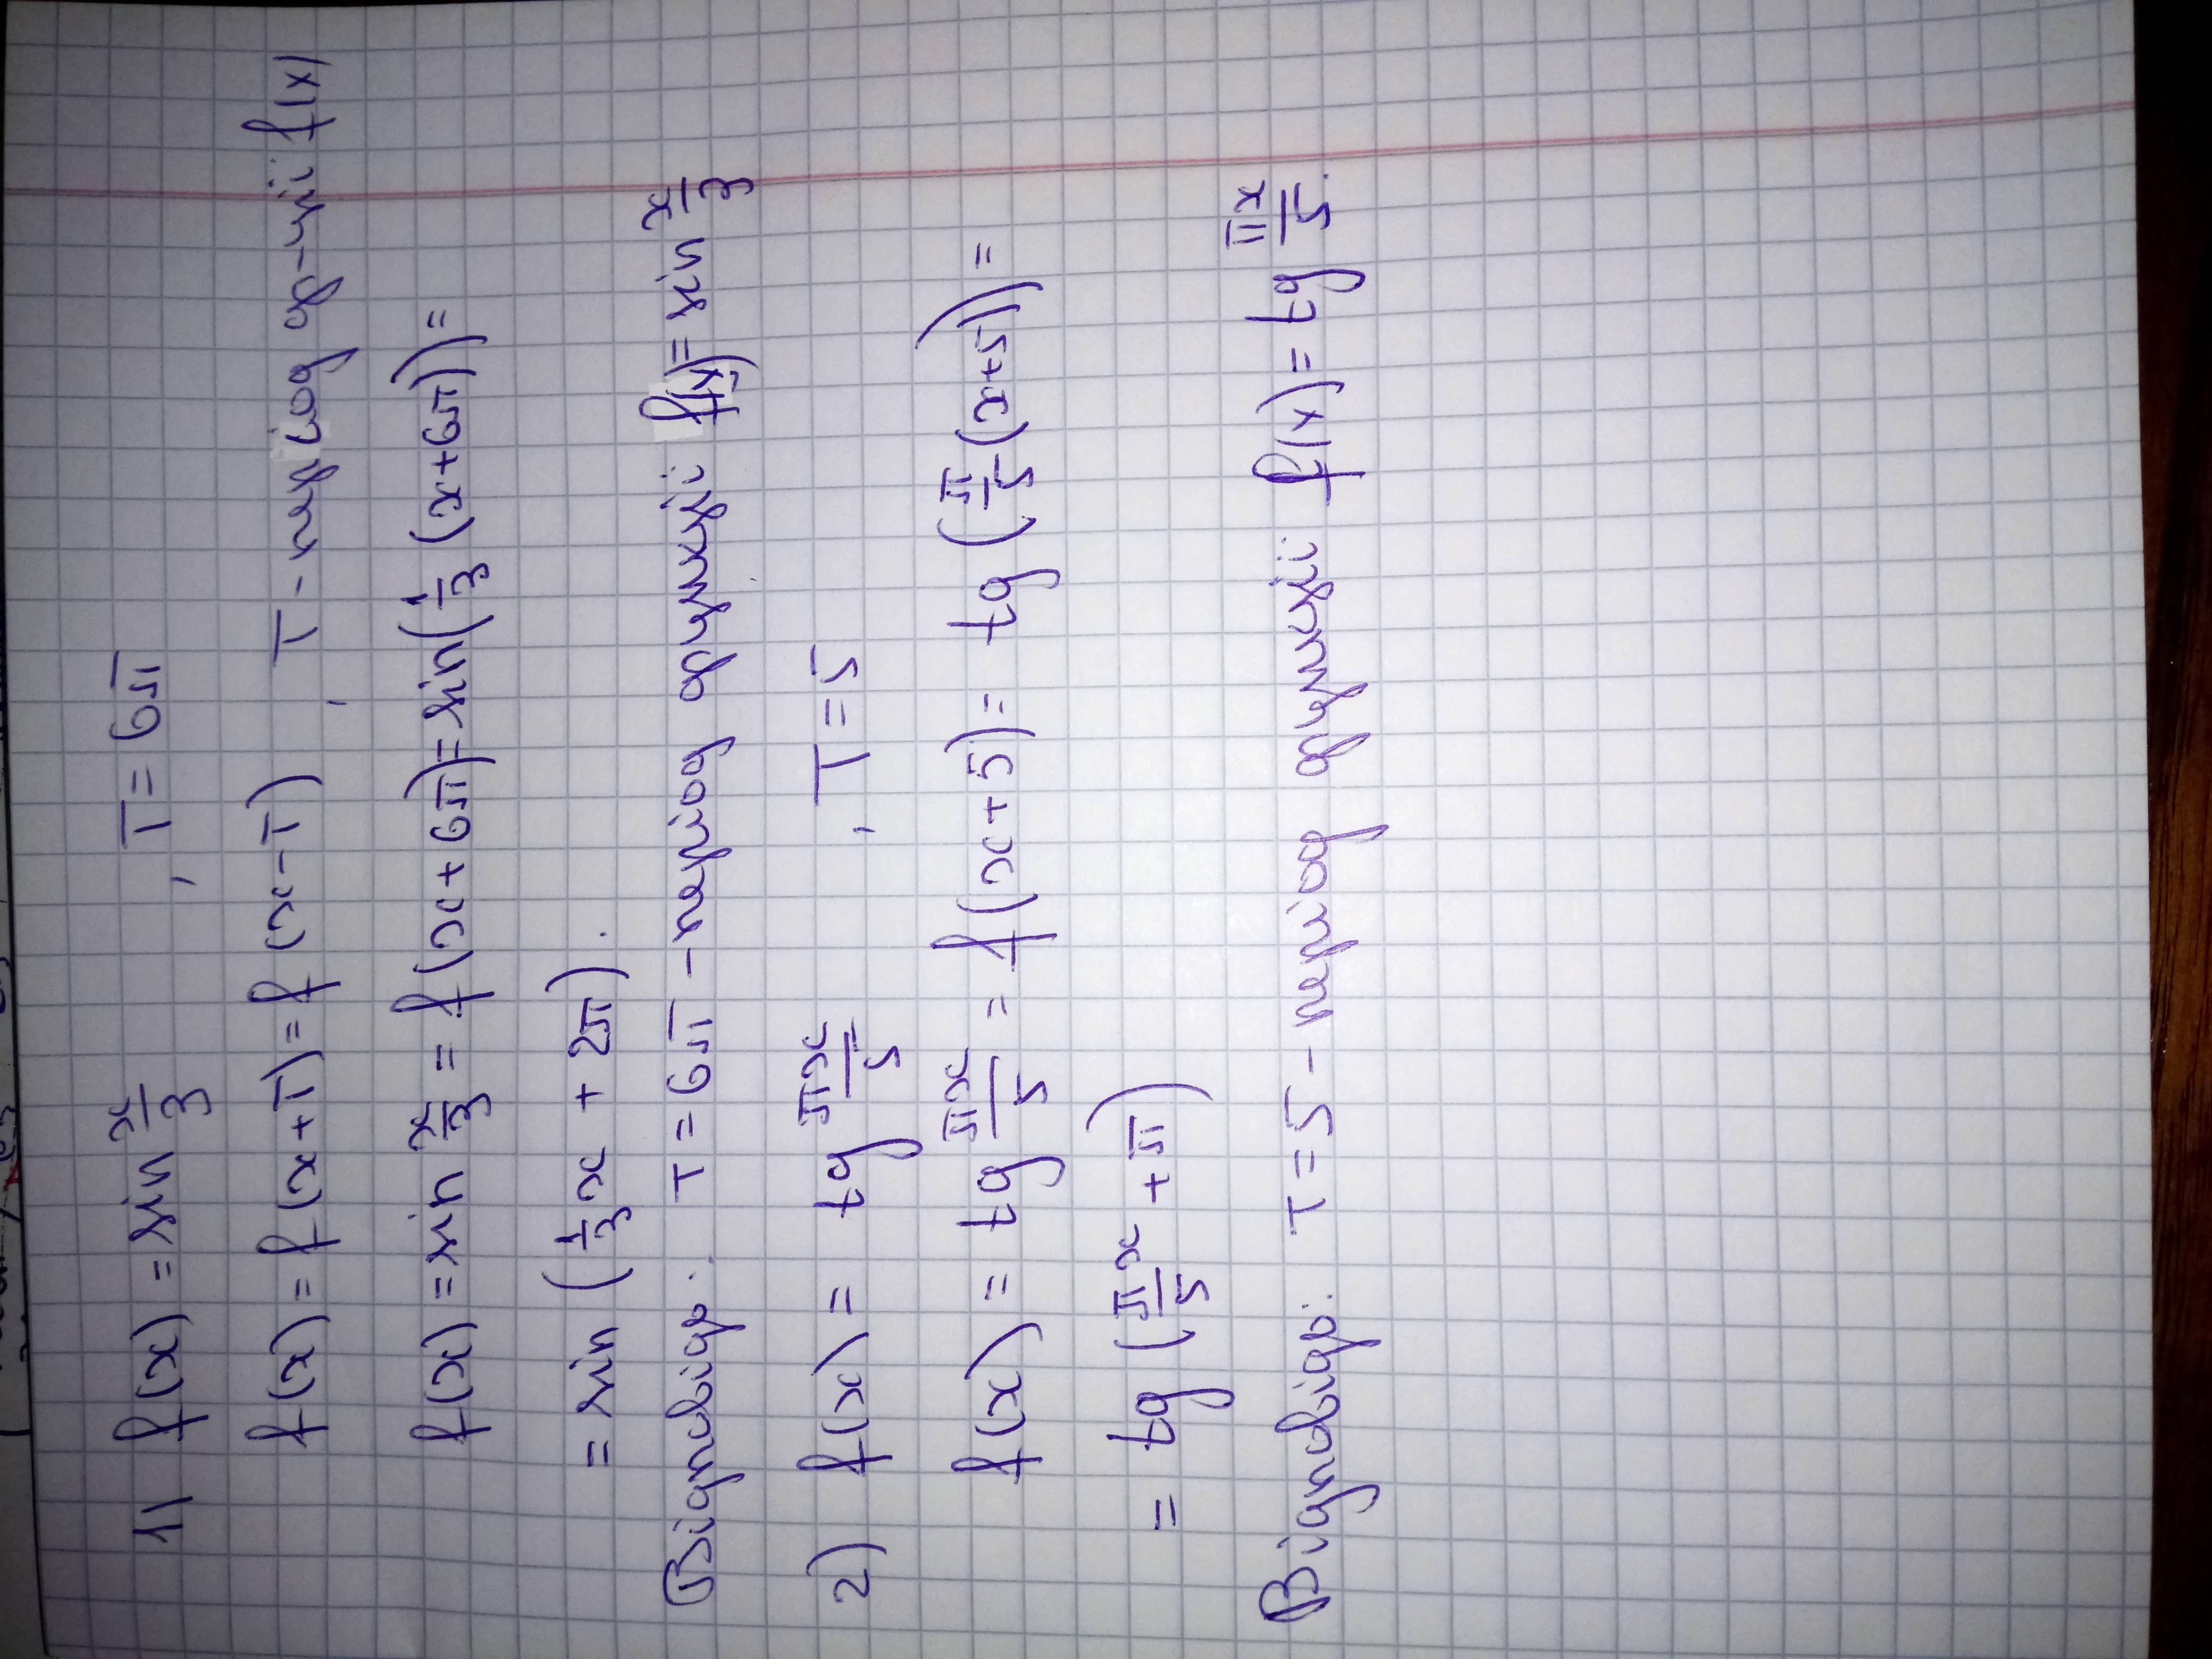 1) f(x) = sin x/3 , T = 6π
f(x) = f(x+T) = f(x-T) , T - період ф-ції f(x)
f(x) = sin x/3 = f(x+6π) = sin(1/3 (x+6π)) =
= sin (1/3 x + 2π).
Відповідь: T = 6π - період функції f(x) = sin x/3
2) f(x) = tg πx/5 , T = 5
f(x) = tg πx/5 = f(x+5) = tg (π/5 (x+5)) =
= tg (πx/5 + π)
Відповідь: T = 5 - період функції f(x) = tg πx/5.